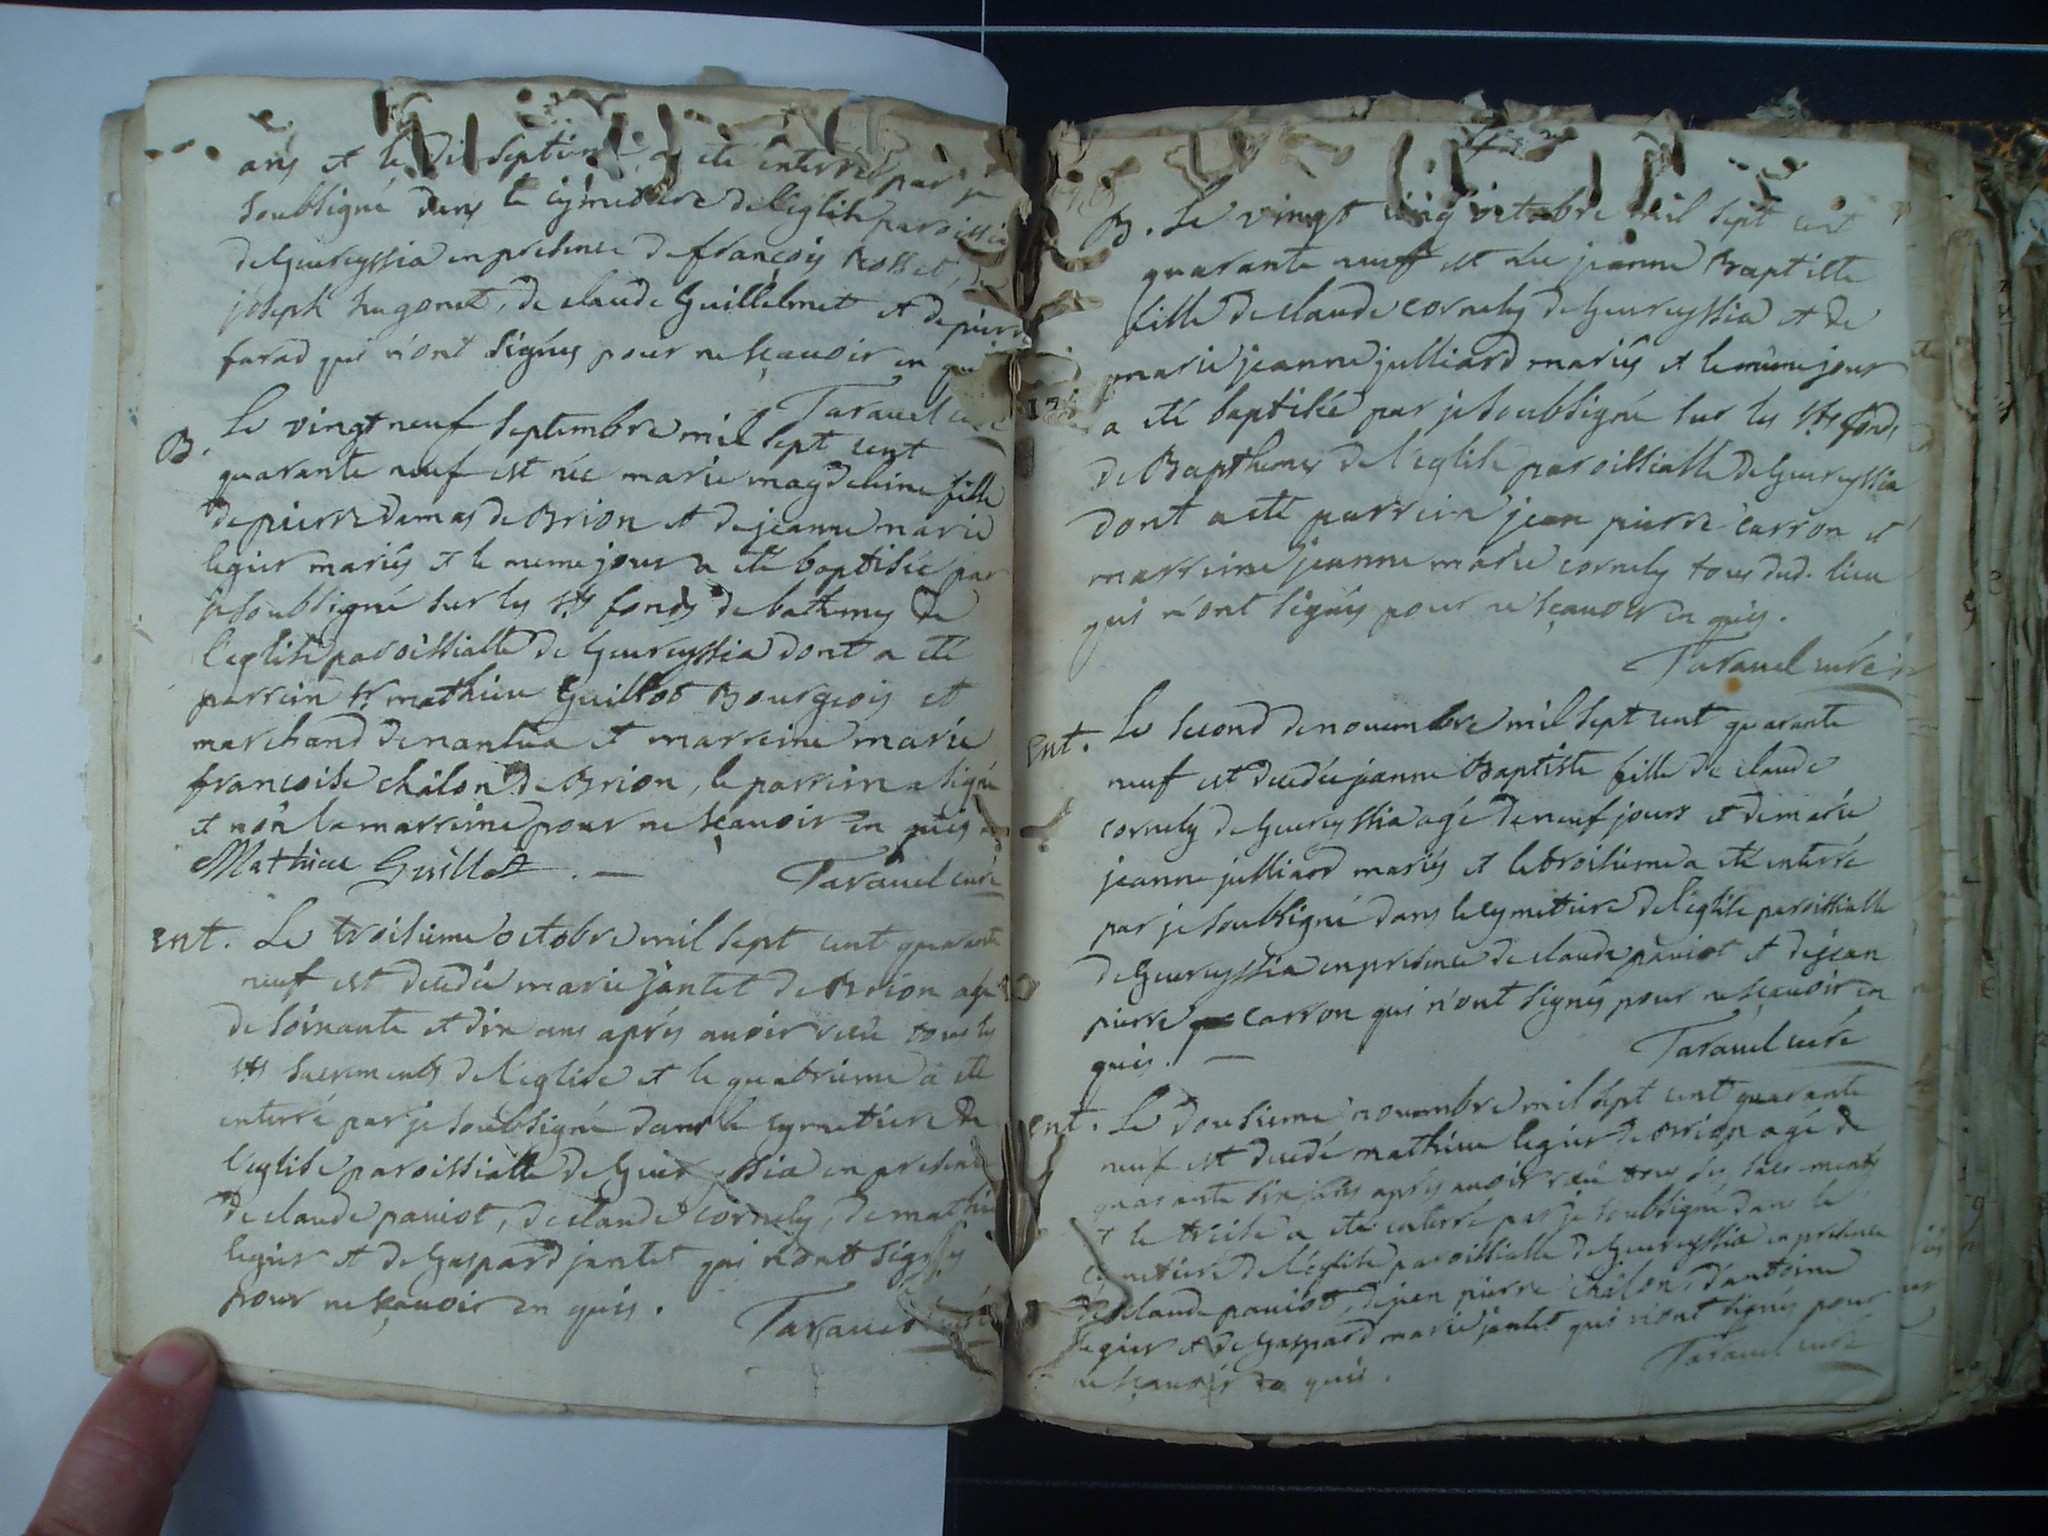 ans et le dis septieme a eté interré par je
soubsigné dans le cymetiere de l'eglise paroissia
de Geureyssia en presence de françois Rosset, de
joseph hugonet, de claude Guillelmet et de pierre
farad qui n'ont signés pour ne sçavoir en
Taravel curé
B. Le vingt neuf septembre mil sept cent
quarante neuf est née marie magdeleine fille
de pierre damas de Brion et de jeanne marie
legier mariés et le meme jour a eté baptisée par
je soubsigné sur les sts fonds de bathemes de
l'eglise paroissialle de Geureyssia dont a eté
parrein sr mathieu Guillot Bourgeois et
marchand de nantua et marreine marie
françoise châlon de Brion, le parrein a signé
et non la marreine pour ne sçavoir en quis
Mathieu Guillot . —
Taravel curé
Ent. Le troisieme octobre mil sept cent quarante
neuf est decedée marie jantet de Brion agé
de soixante et dix ans aprés avoir receu tous les
sts sacrements de l'eglise et le quatrieme a eté
interré par je soubsigné dans le cymetiere de
l'eglise paroissialle de Geureyssia en presence
de claude paviot, de claude cornely, de mathieu
legier et de Gaspard jantet qui n'ont signés
pour ne sçavoir en quis .
Taravel curé
B. Le vingt cinq octobre mil sept cent
quarante neuf est née jeanne Baptiste
fille de claude cornely de Geureyssia et de
marie jeanne julliard mariés et le meme jour
a eté baptisée par je soubsigné sur les sts fonds
de Bapthemes de l'eglise paroissialle de Geureyssia
dont a eté parrein jean pierre carron et
marreine jeanne marie cornely tous dud. lieu
qui n'ont signés pour ne sçavoir en quis .
Taravel curé
Ent. Le second de novembre mil sept cent quarante
neuf est decedée jeanne Baptiste fille de claude
cornely de Geureyssia agé de neuf jours et de marie
jeanne julliard mariés et le troisieme a eté interré
par je soubsigné dans le cymetiere de l'eglise paroissialle
de Geureyssia en presence de claude paviot et de jean
pierre carron qui n'ont signés pour ne sçavoir en
quis . —
Taravel curé
Ent. Le dousieme novembre mil sept cent quarante
neuf est decedé mathieu legier de Brion agé de
quarante six ans aprés avoir receu tous les sacrements
et le treise a eté interré par je soubsigné dans le
cymetiere de l'eglise paroissialle de Geureyssia en presence
de claude paviot, de jean pierre châlon, d'antoine
legier et de Gaspard marie jantet qui n'ont signés pour
ne sçavoir en quis .
Taravel curé